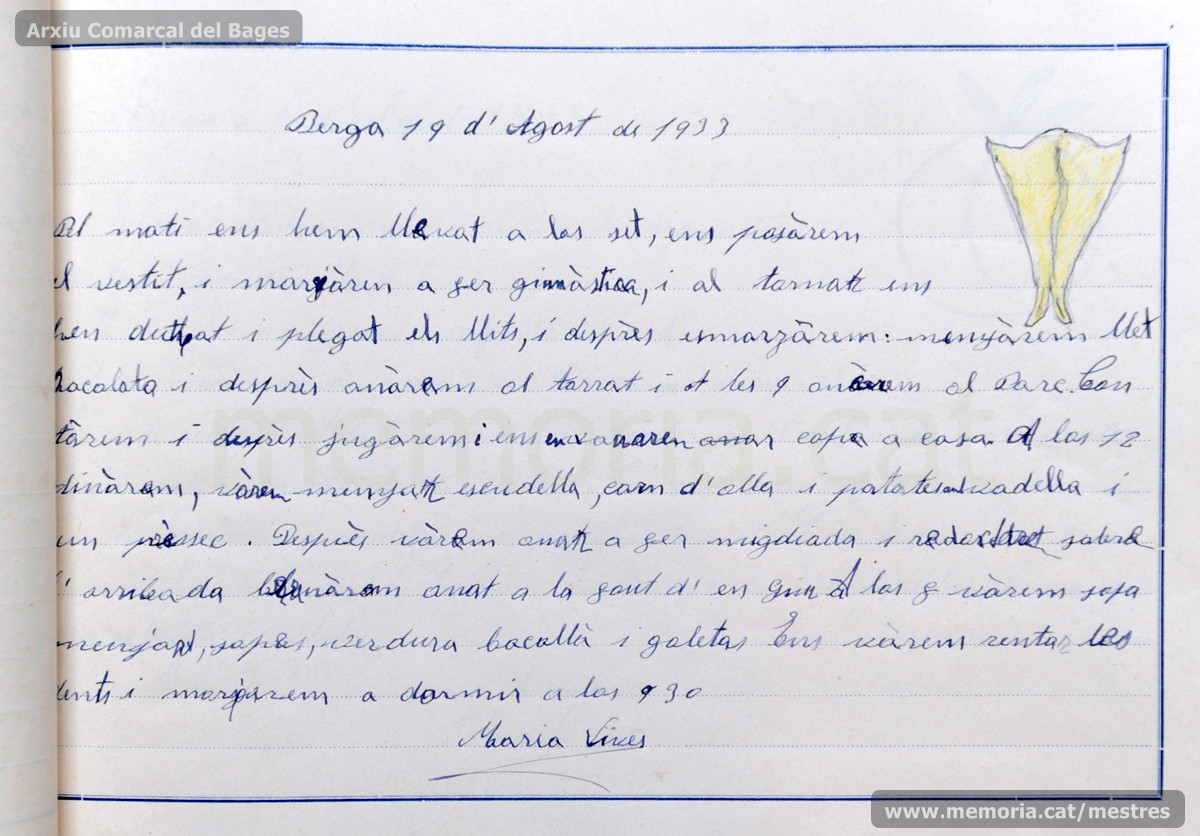 Arxiu Comarcal del Bages
Berga 19 d' Agost de 1933
Al mati ens hem llevat a las set, ens posàrem
el vestit, i marjàrem a fer gimnàstica, i al tornar ens
hen dutxat i plegat els llits, i desprès esmorzàrem: menjàrem llet
xacolata i desprès anàrem al tarrat i A les 9 anàrem al Parc. Can
tàrem i desprès jugàrem i ens en vanarem anar capa a casa. A las 12
dinàrem, vàrem menjar escudella, carn d'olla i patates vadella i
un prèssec. Desprès vàrem anar a fer migdiada i sobre
l' arribada anat a la font d' en A las 8 vàrem sopa
menjar, sopes, verdura bacallà i galetas Ens vàrem rentar les
dents i marjàrem a dormir a las 9 30
Maria Vives
memoria.cat
www.memoria.cat/mestres